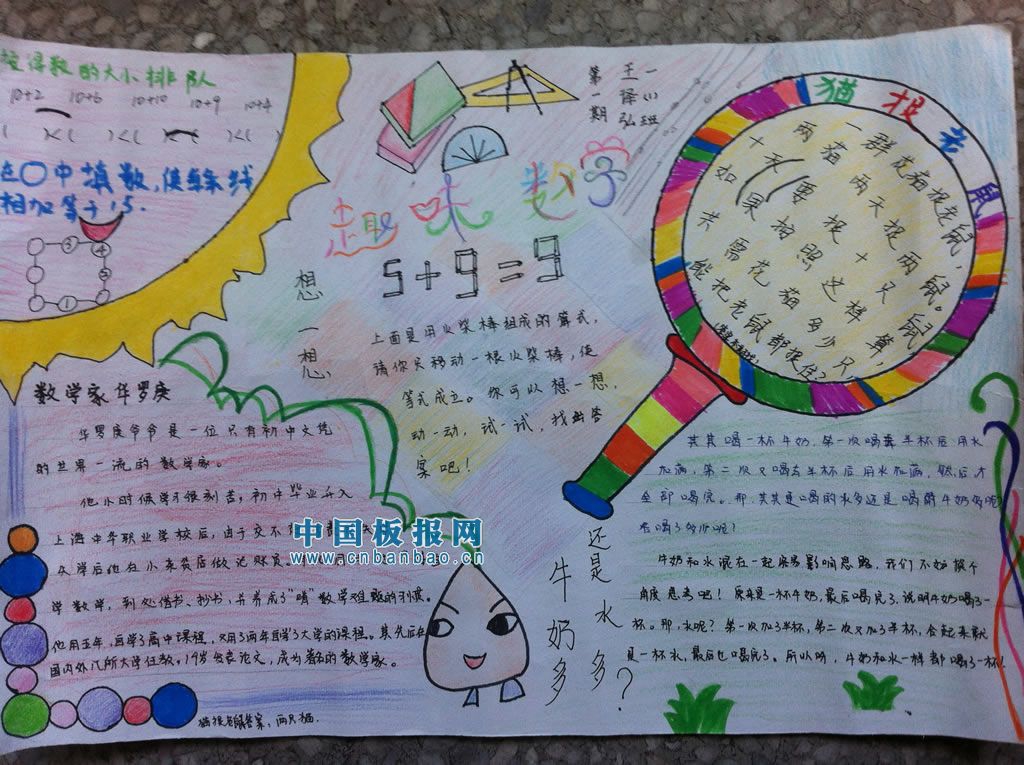 按得数的大小排队
10+2 10+6 10+10 10+9 10+4
( )<( )<( )<( )<( )
在○中填数,使每条线
相加等于15.
3 4
1 5
第一期
王译弘
一(1)班
趣味数学
5+9=9
想一想
上面是用火柴棒组成的算式,
请你只移动一根火柴棒,使
等式成立。你可以想一想,
动一动,试一试,找出答
案吧!
猫捉老鼠
一群花猫捉老鼠,
两猫两天捉两鼠。
十天要捉十只鼠
如果按照这样算,
共需花猫多少只
能把老鼠都捉住?
数学家华罗庚
华罗庚爷爷是一位只有初中文凭
的世界一流的数学家。
他小时候学习很刻苦,初中毕业升入
上海中华职业学校后,由于交不
失学后他在小杂货店做记账员。
学数学,到处借书、抄书,并养成了“啃”数学难题的习惯。
他用五年,自学了高中课程,又用了两年自学了大学的课程。其先后在
国内外几所大学任教。19岁发表论文,成为著名的数学家。
猫捉老鼠答案:两只猫。
中国板报网
www.cnbanbao.cn
牛奶多
还是水多?
其其喝一杯牛奶,第一次喝去半杯后用水
加满,第二次又喝去半杯后用水加满,然后才
全部喝完。那,其其是喝的水多还是喝的牛奶多呢?
各喝了多少呢?
牛奶和水混在一起容易影响思路,我们不妨换个
角度思考吧!原来是一杯牛奶,最后喝完了,说明牛奶喝了一
杯。那,水呢?第一次加了半杯,第二次又加了半杯,合起来就
是一杯水,最后也喝完了。所以呀,牛奶和水一样都喝了一杯!